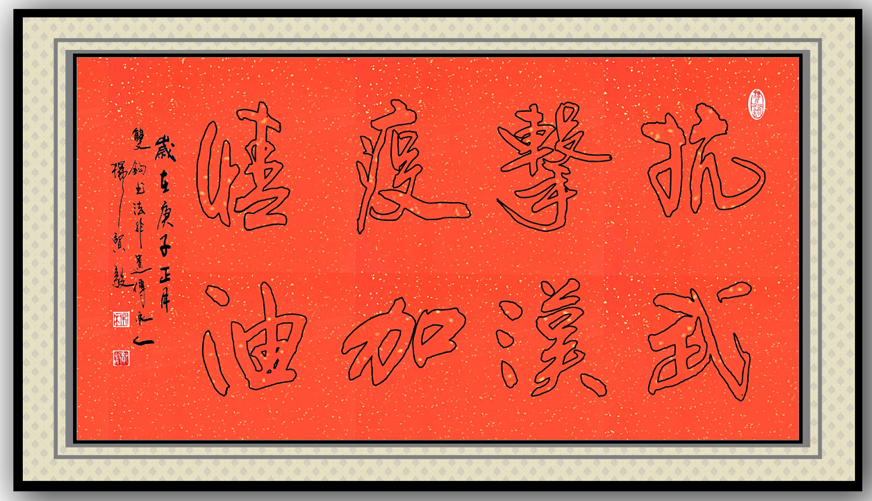 抗擊疫情
武漢加油
歲在庚子正月
雙鈎书法非遺傳承人
楊賀毅